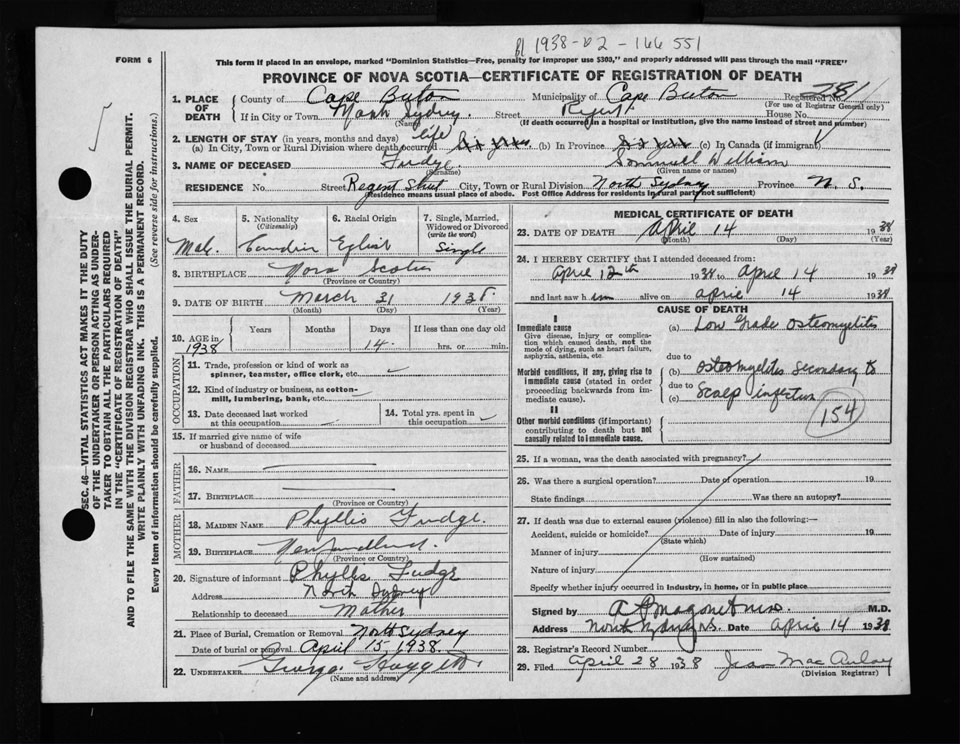 1938-02-166551
FORM 6
This form if placed in an envelope, marked "Dominion Statistics—Free, penalty for improper use $300," and properly addressed will pass through the mail "FREE"
PROVINCE OF NOVA SCOTIA—CERTIFICATE OF REGISTRATION OF DEATH
SEC. 46—VITAL STATISTICS ACT MAKES IT THE DUTY
OF THE UNDERTAKER OR PERSON ACTING AS UNDER-
TAKER TO OBTAIN ALL THE PARTICULARS REQUIRED
IN THE "CERTIFICATE OF REGISTRATION OF DEATH"
AND TO FILE THE SAME WITH THE DIVISION REGISTRAR WHO SHALL ISSUE THE BURIAL PERMIT.
WRITE PLAINLY WITH UNFADING INK. THIS IS A PERMANENT RECORD.
Every item of information should be carefully supplied. (See reverse side for instructions.)
1. PLACE OF DEATH County of Cape Breton Municipality of Cape Breton Registered No. 781
(For use of Registrar General only)
If in City or Town North Sydney Street Regent House No.
(Name) (If death occurred in a hospital or institution, give the name instead of street and number)
2. LENGTH OF STAY (in years, months and days)
(a) In City, Town or Rural Division where death occurred life (b) In Province (c) In Canada (if immigrant)
3. NAME OF DECEASED Fudge Sommuell William
(Surname) (Given name or names)
RESIDENCE No. Street Regent Street City, Town or Rural Division North Sydney Province N. S.
(Residence means usual place of abode. Post Office Address for residents in rural party not sufficient)
4. Sex 5. Nationality 6. Racial Origin 7. Single, Married,
(Citizenship) Widowed or Divorced
(write the word)
Male Canadian English Single
8. BIRTHPLACE Nova Scotia
(Province or Country)
9. DATE OF BIRTH March 31 1938
(Month) (Day) (Year)
10. AGE in Years Months Days If less than one day old
1938 14 hrs. or min.
OCCUPATION
11. Trade, profession or kind of work as
spinner, teamster, office clerk, etc.
12. Kind of industry or business, as cotton-
mill, lumbering, bank, etc.
13. Date deceased last worked 14. Total yrs. spent in
at this occupation this occupation
15. If married give name of wife
or husband of deceased
FATHER
16. NAME
17. BIRTHPLACE
(Province or Country)
MOTHER
18. MAIDEN NAME Phyllis Fudge.
19. BIRTHPLACE Newfoundland.
(Province or Country)
20. Signature of informant Phyllis Fudge
Address North Sydney
Relationship to deceased Mother
21. Place of Burial, Cremation or Removal North Sydney
Date of burial or removal April 15 1938.
22. UNDERTAKER George
(Name and address)
MEDICAL CERTIFICATE OF DEATH
23. DATE OF DEATH April 14 1938
(Month) (Day) (Year)
24. I HEREBY CERTIFY that I attended deceased from:
April 12th 1938 to April 14 1938
and last saw him alive on April 14 1938
CAUSE OF DEATH
I
Immediate cause
Give disease, injury or complica-
tion which caused death, not the
mode of dying, such as heart failure,
asphyxia, asthenia, etc.
(a) Low Grade Osteomyelitis
due to
Morbid conditions, if any, giving rise to
immediate cause (stated in order
proceeding backwards from im-
mediate cause).
(b) Osteomyelitis Secondary to
due to
(c) Scalp infection
154
II
Other morbid conditions (if important)
contributing to death but not
causally related to immediate cause.
25. If a woman, was the death associated with pregnancy?
26. Was there a surgical operation? Date of operation 19
State findings Was there an autopsy?
27. If death was due to external causes (violence) fill in also the following:—
Accident, suicide or homicide? Date of injury 19
(State which)
Manner of injury
(How sustained)
Nature of injury
Specify whether injury occurred in industry, in home, or in public place
Signed by M.D.
Address North Sydney N.S. Date April 14 1938
28. Registrar's Record Number
29. Filed April 28 1938 Jean MacAulay
(Division Registrar)